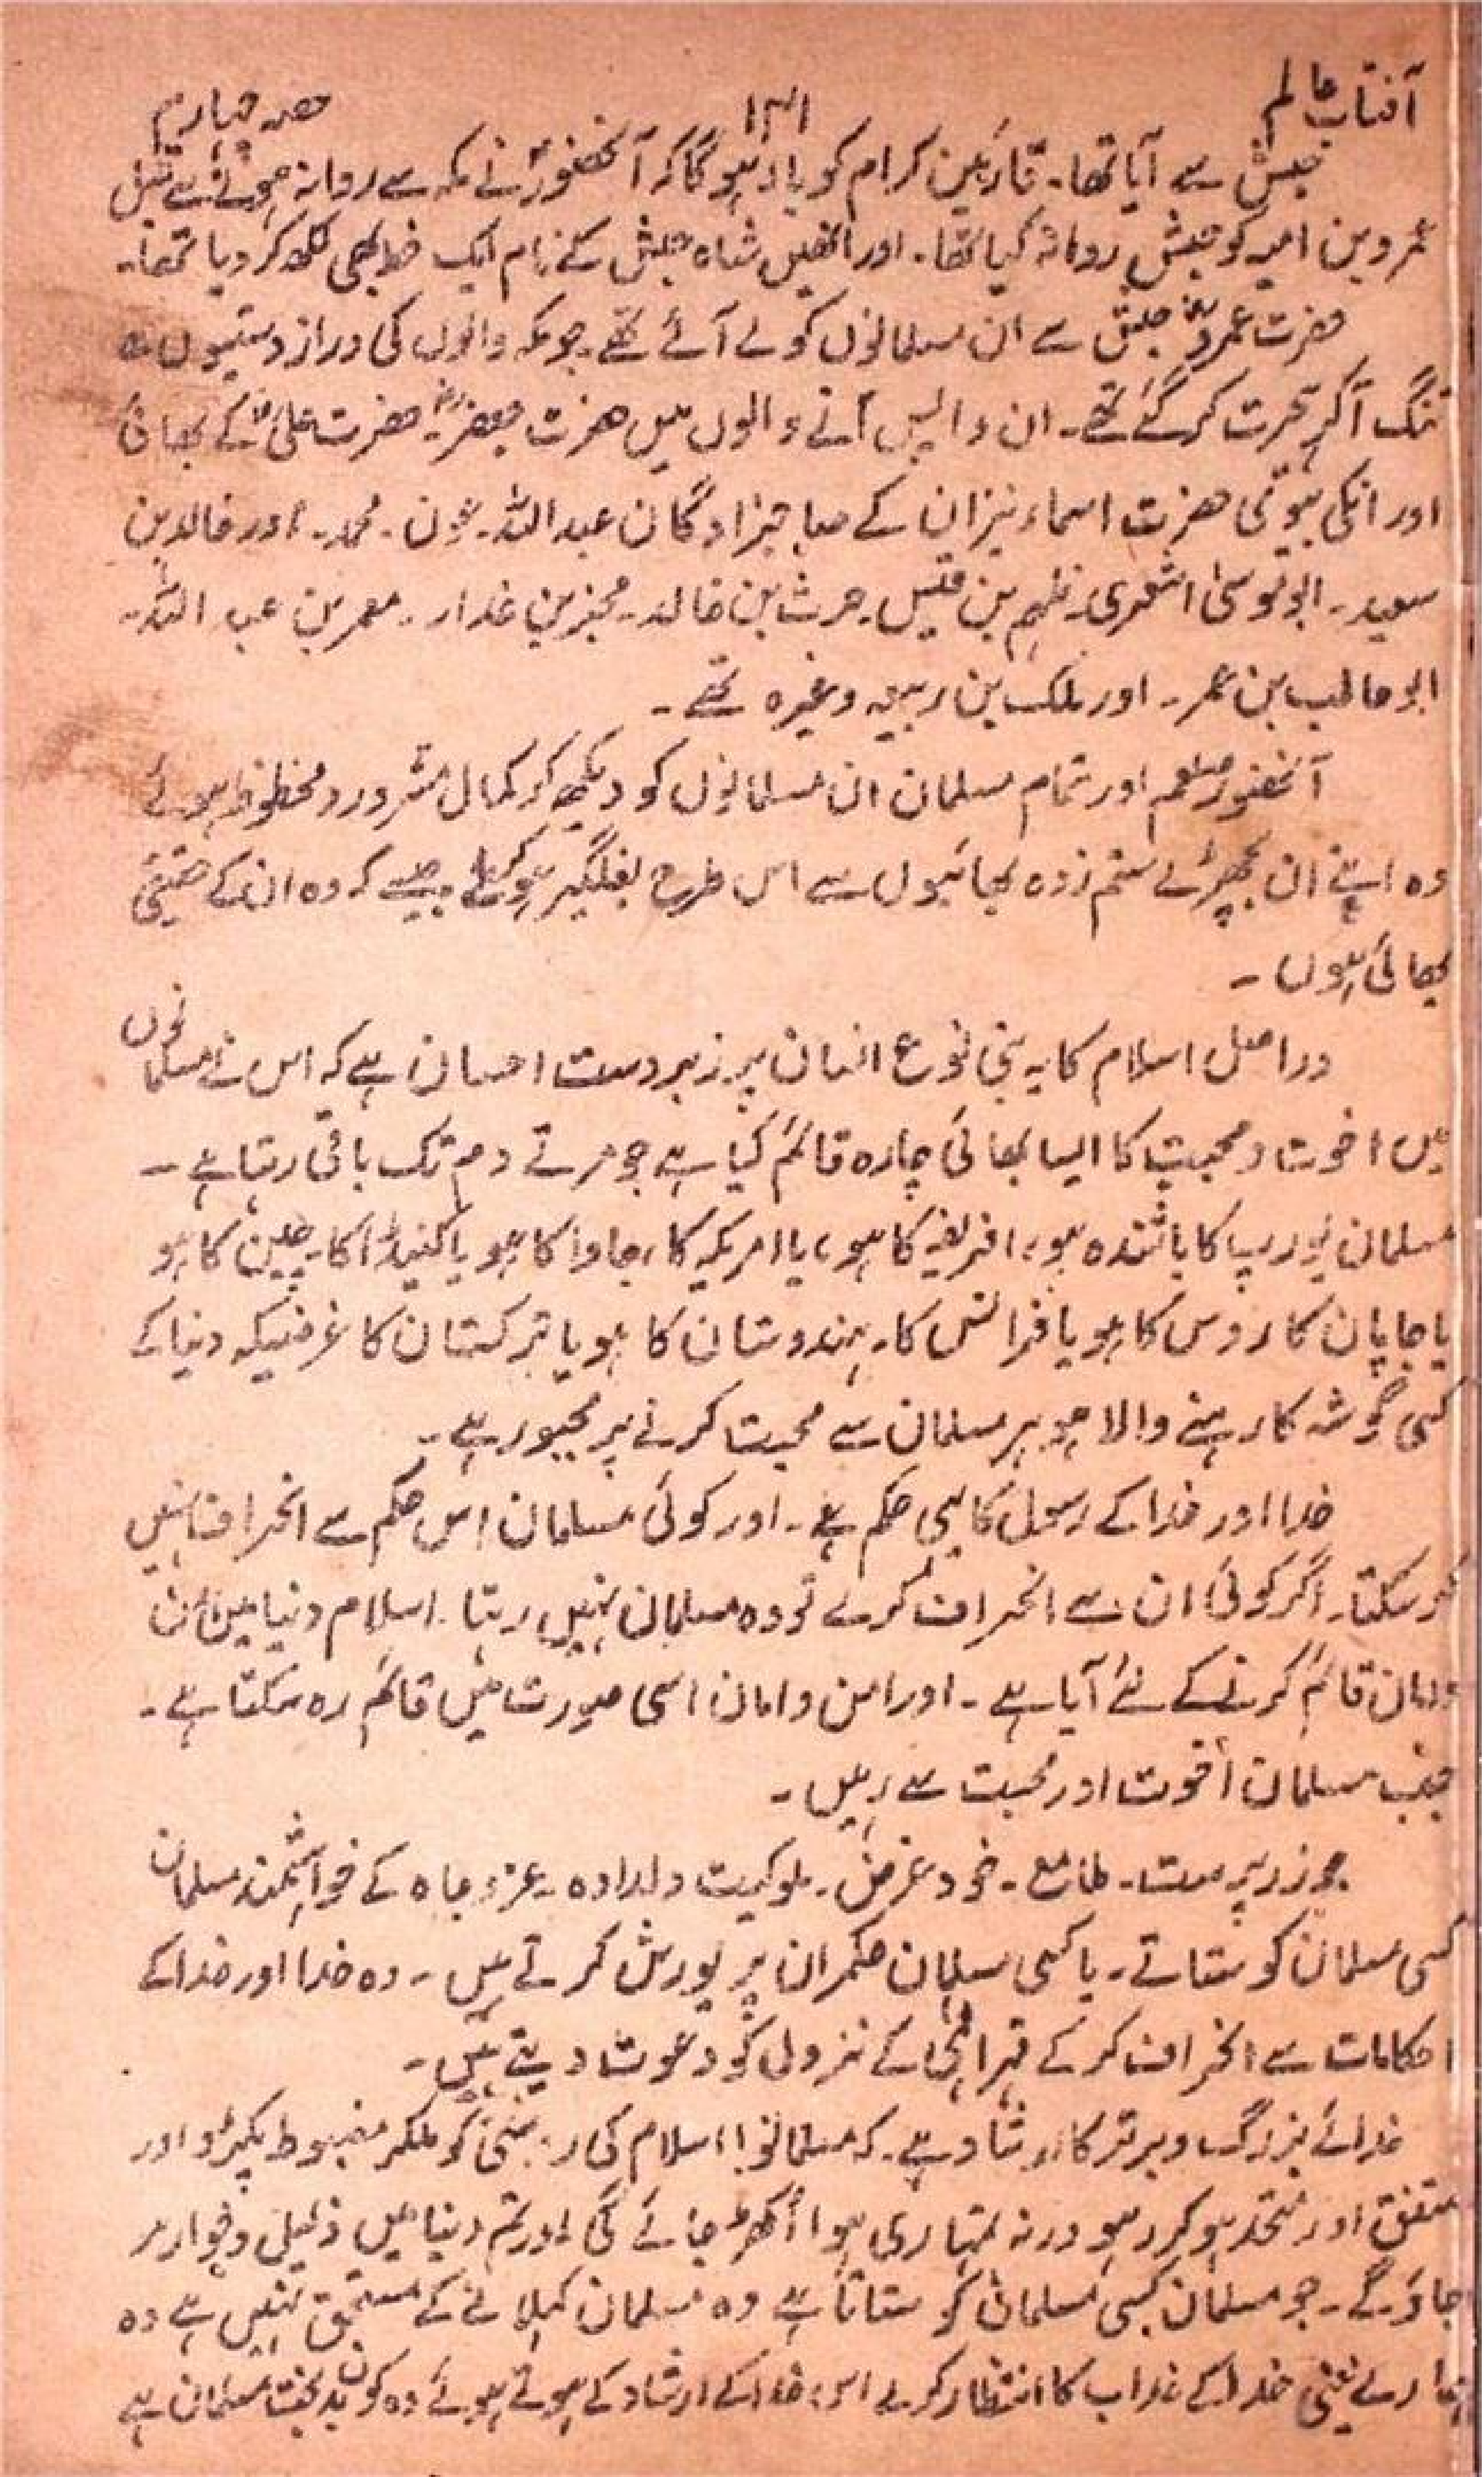 آفتاب عالم ۱۳۱ حصہ چہارم
حبش سے آیا تھا۔ قارئین کرام کو یاد ہوگا کہ آنحضورؐ نے مکہ سے روانہ ہونے سے قبل
عمرو بن امیہ کو حبش روانہ کیا تھا۔ اور انھیں شاہ حبش کے نام ایک خط بھی لکھ کر دیا تھا۔
حضرت عمروؓ حبش سے ان مسلمانوں کو لے آئے تھے۔ جو مکہ والوں کی دراز دستیوں سے
تنگ آکر ہجرت کر گئے تھے۔ ان واپس آنے والوں میں حضرت جعفرؓ۔ حضرت علیؓ کے بھائی
اور انکی بیوی حضرت اسماء نیز ان کے صاحبزادگان عبداللہ۔ عون۔ محمد۔ اور خالد بن
سعید۔ ابو موسیٰ اشعری۔ بن قیس۔ حرث بن خالد۔ بن غدار۔ معمر بن عبد اللہ۔
ابو حاطب بن عمر۔ اور ملک بن ربیعہ وغیرہ تھے۔
آنحضور صلعم اور تمام مسلمان ان مسلمانوں کو دیکھ کر کمال مسرور و محظوظ ہوئے
وہ اپنے ان بچھڑے ستم زدہ بھائیوں سے اس طرح بغلگیر ہوئے جیسے کہ وہ ان کے حقیقی
بھائی ہوں۔
دراصل اسلام کا یہ بنی نوع انسان پر زبردست احسان ہے کہ اس نے مسلمانوں
میں اخوت و محبت کا ایسا بھائی چارہ قائم کیا ہے جو مرتے دم تک باقی رہتا ہے۔
مسلمان یورپ کا باشندہ ہو، افریقہ کا ہو، یا امریکہ کا، جاوا کا ہو یا کنیڈا کا۔ چین کا ہو
یا جاپان کا روس کا ہو یا فرانس کا۔ ہندوستان کا ہو یا ترکستان کا غرضیکہ دنیا کے
کسی گوشہ کا رہنے والا ہو ہر مسلمان سے محبت کرنے پر مجبور ہے۔
خدا اور خدا کے رسولؐ کا یہی حکم ہے۔ اور کوئی مسلمان اس حکم سے انحراف نہیں
کر سکتا۔ اگر کوئی ان سے انحراف کرے تو وہ مسلمان نہیں رہتا۔ اسلام دنیا میں امن
و امان قائم کرنے کے لئے آیا ہے۔ اور امن و امان اسی صورت میں قائم رہ سکتا ہے۔
جب مسلمان اخوت اور محبت سے رہیں۔
جو زر پرست۔ طامع۔ خود غرض۔ ملوکیت دلدادہ۔ عز و جاہ کے خواہشمند مسلمان
کسی مسلمان کو ستاتے۔ یا کسی مسلمان حکمران پر یورش کرتے ہیں۔ وہ خدا اور خدا کے
احکامات سے انحراف کر کے قہر الٰہی کے نزول کو دعوت دیتے ہیں۔
خدائے بزرگ و برتر کا ارشاد ہے۔ کہ مسلمانو! اسلام کی رسی کو ملکر مضبوط پکڑو اور
متفق اور متحد ہوکر رہو ورنہ تمہاری ہوا اُکھڑ جائے گی اور تم دنیا میں ذلیل و خوار ہو
جاؤ گے۔ جو مسلمان کسی مسلمان کو ستاتا ہے وہ مسلمان کہلانے کے مستحق نہیں ہے وہ
ہمارے یعنی خدا کے عذاب کا انتظار کرے اس خدا کے ارشاد کے ہوتے ہوئے وہ کون بدبخت مسلمان ہے